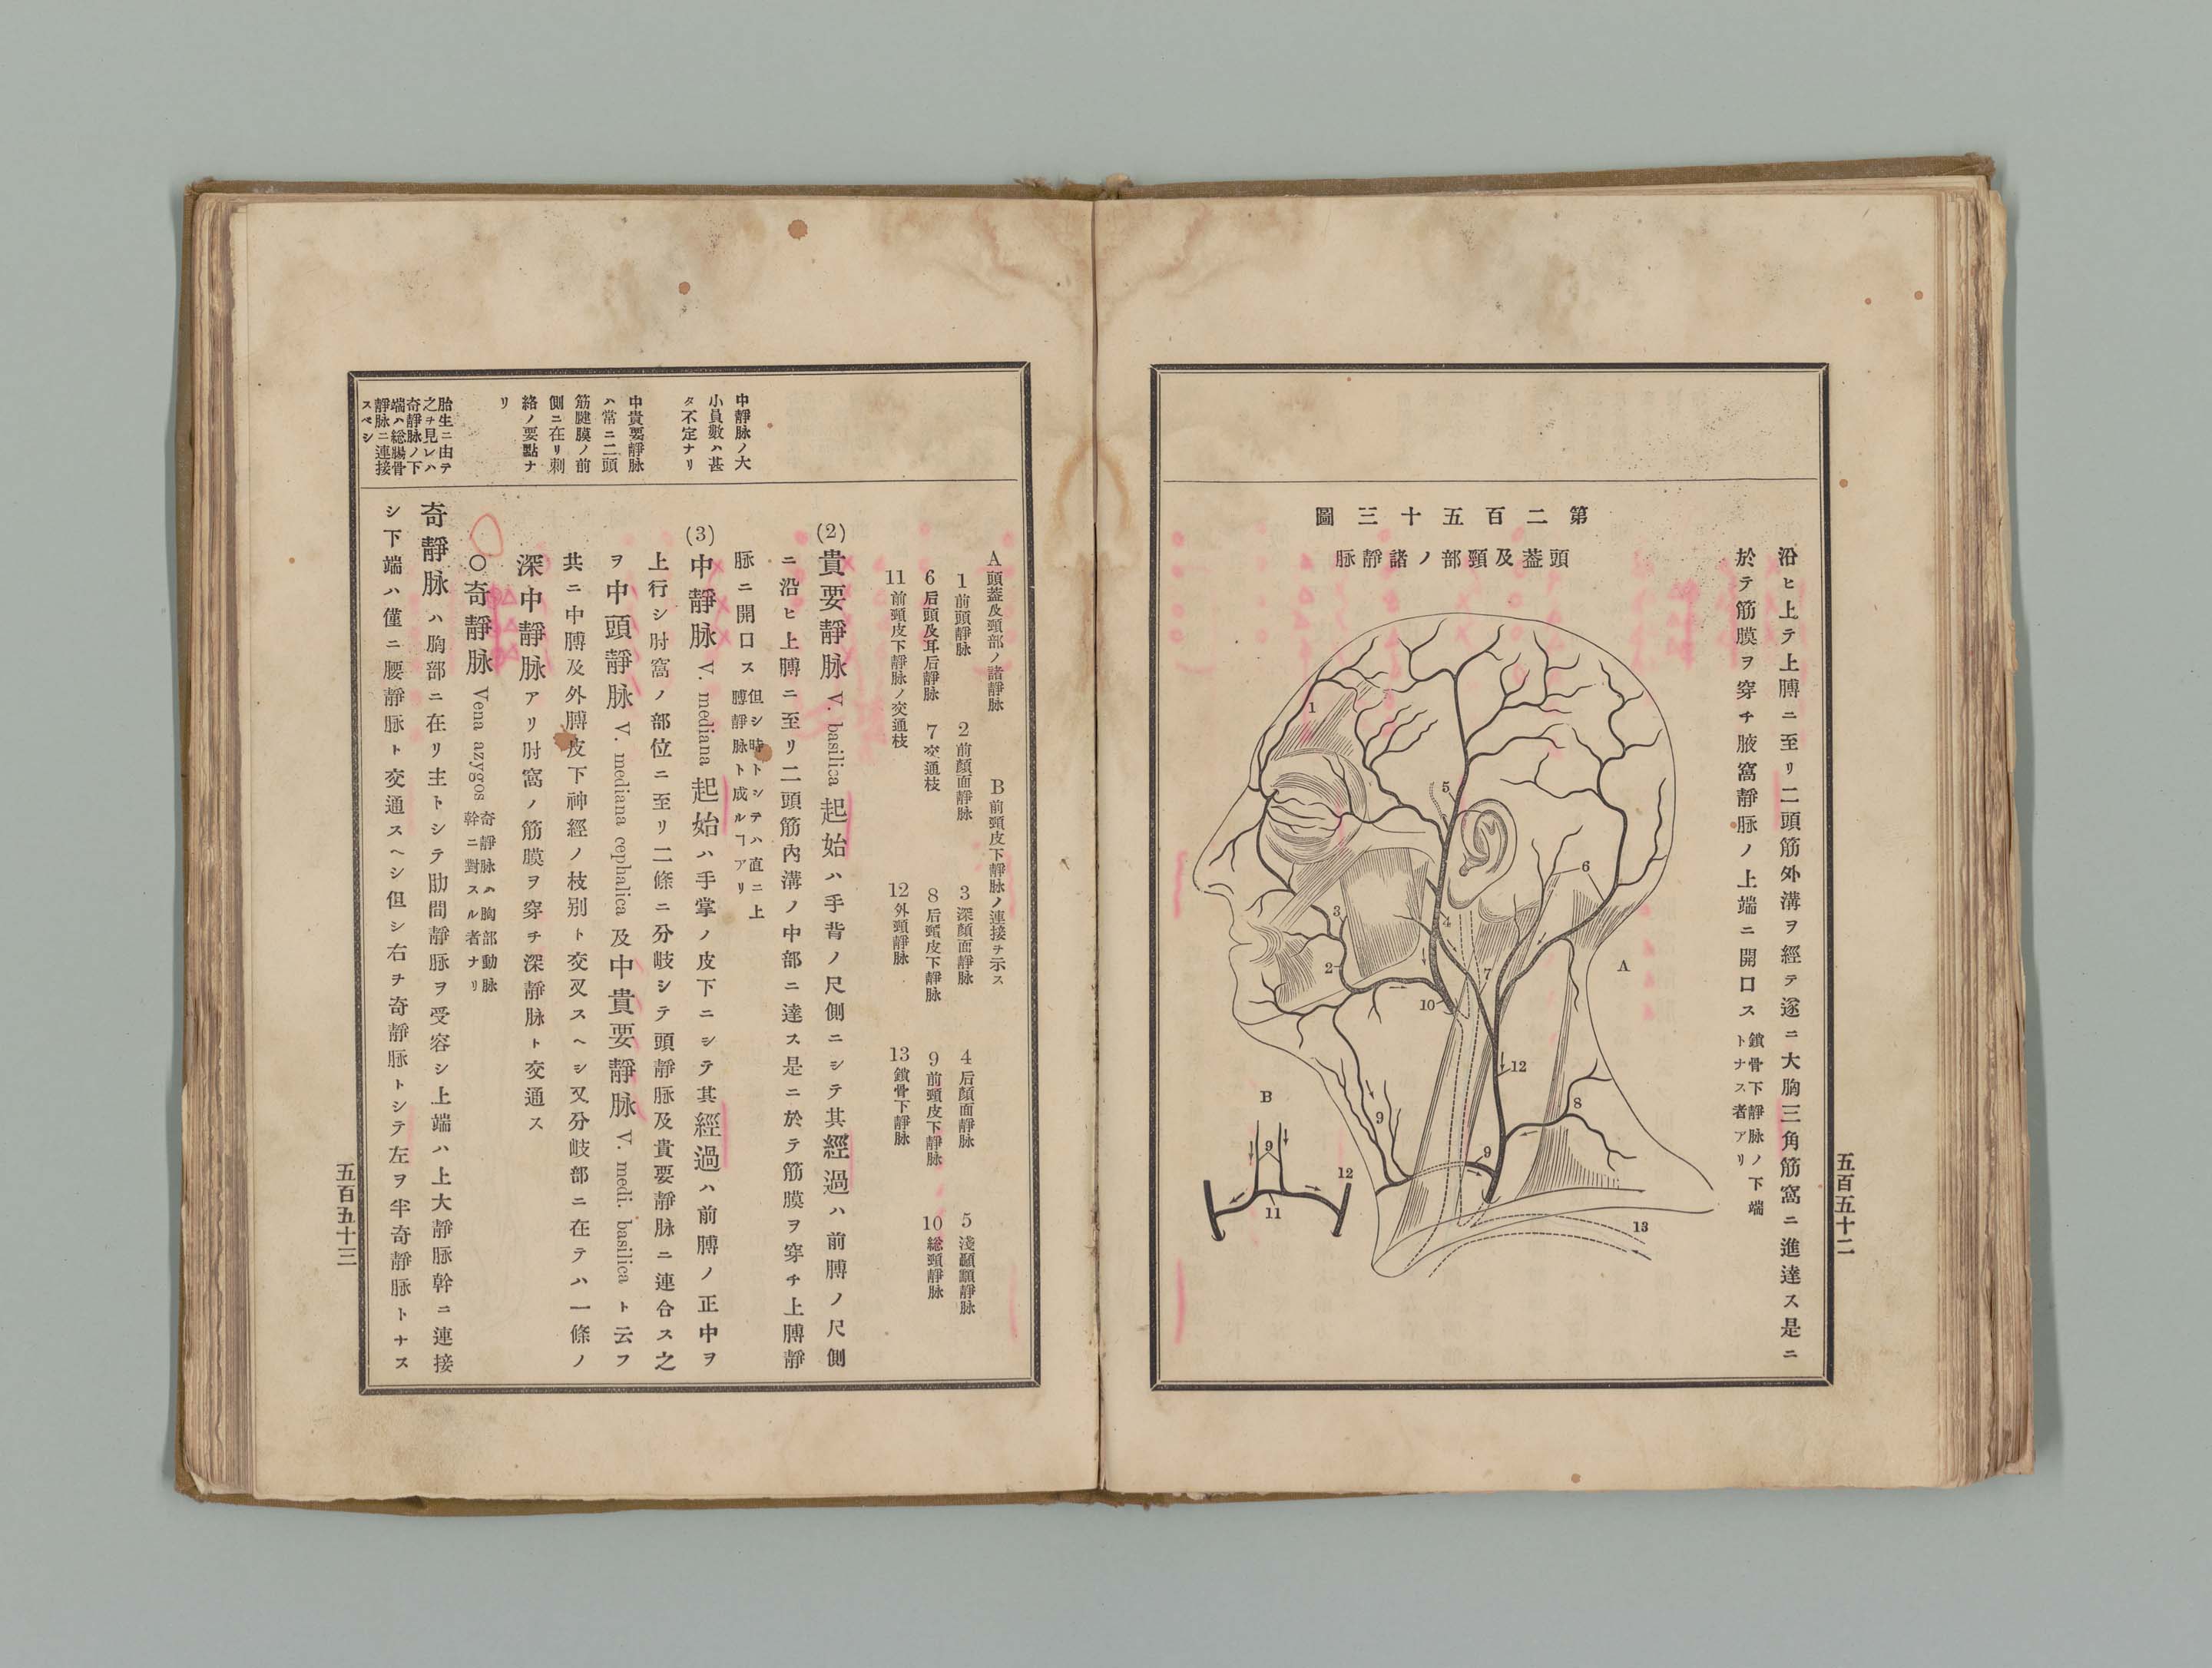 沿ヒ上テ上膊ニ至リ二頭筋外溝ヲ經テ遂ニ大胸三角筋窩ニ進達ス是ニ
於テ筋膜ヲ穿チ腋窩靜脈ノ上端ニ開口ス
鎖骨下靜脉ノ下端
トナス者アリ
圖三十五百二第
脉靜諸ノ部頸及葢頭
1
5
6
3
4
2
7
10
A
12
8
9
9
B
9
12
11
13
五百五十二
A 頭葢及頸部ノ諸靜脉 B 前頸皮下靜脉ノ連接ヲ示ス
1 前頭靜脉 2 前顔面靜脉 3 深顔面靜脉 4 后顔面靜脉 5 淺顳顬靜脉
6 后頭及耳后靜脉 7 交通枝 8 后頸皮下靜脉 9 前頸皮下靜脉 10 総頸靜脉
11 前頸皮下靜脉ノ交通枝 12 外頸靜脉 13 鎖骨下靜脉
中靜脉ノ大
小員數ハ甚
タ不定ナリ
中貴要靜脉
ハ常ニ二頭
筋腱膜ノ前
側ニ在リ刺
絡ノ要點ナ
リ
胎生ニ由テ
之ヲ見レハ
奇靜脉ノ下
端ハ総膓骨
靜脉ニ連接
スベシ
(2) 貴要靜脉 V. basilica 起始ハ手背ノ尺側ニシテ其經過ハ前膊ノ尺側
ニ沿ヒ上膊ニ至リ二頭筋內溝ノ中部ニ達ス是ニ於テ筋膜ヲ穿チ上膊靜
脉ニ開口ス
但シ時トシテハ直ニ上
膊靜脉ト成ルヿアリ
(3) 中靜脉 V. mediana 起始ハ手掌ノ皮下ニシテ其經過ハ前膊ノ正中ヲ
上行シ肘窩ノ部位ニ至リ二條ニ分岐シテ頭靜脈及貴要靜脈ニ連合ス之
ヲ中頭靜脈 V. mediana cephalica 及中貴要靜脈 V. medi. basilica ト云フ
共ニ中膊及外膊皮下神經ノ枝別ト交叉スヘシ又分岐部ニ在テハ一條ノ
深中靜脈アリ肘窩ノ筋膜ヲ穿チ深靜脈ト交通ス
〇奇靜脈 Vena azygos
奇靜脉ハ胸部動脉
幹ニ對スル者ナリ
奇靜脉ハ胸部ニ在リ主トシテ肋間靜脈ヲ受容シ上端ハ上大靜脈幹ニ連接
シ下端ハ僅ニ腰靜脉ト交通スヘシ但シ右ヲ奇靜脈トシテ左ヲ半奇靜脈トナス
五百五十三